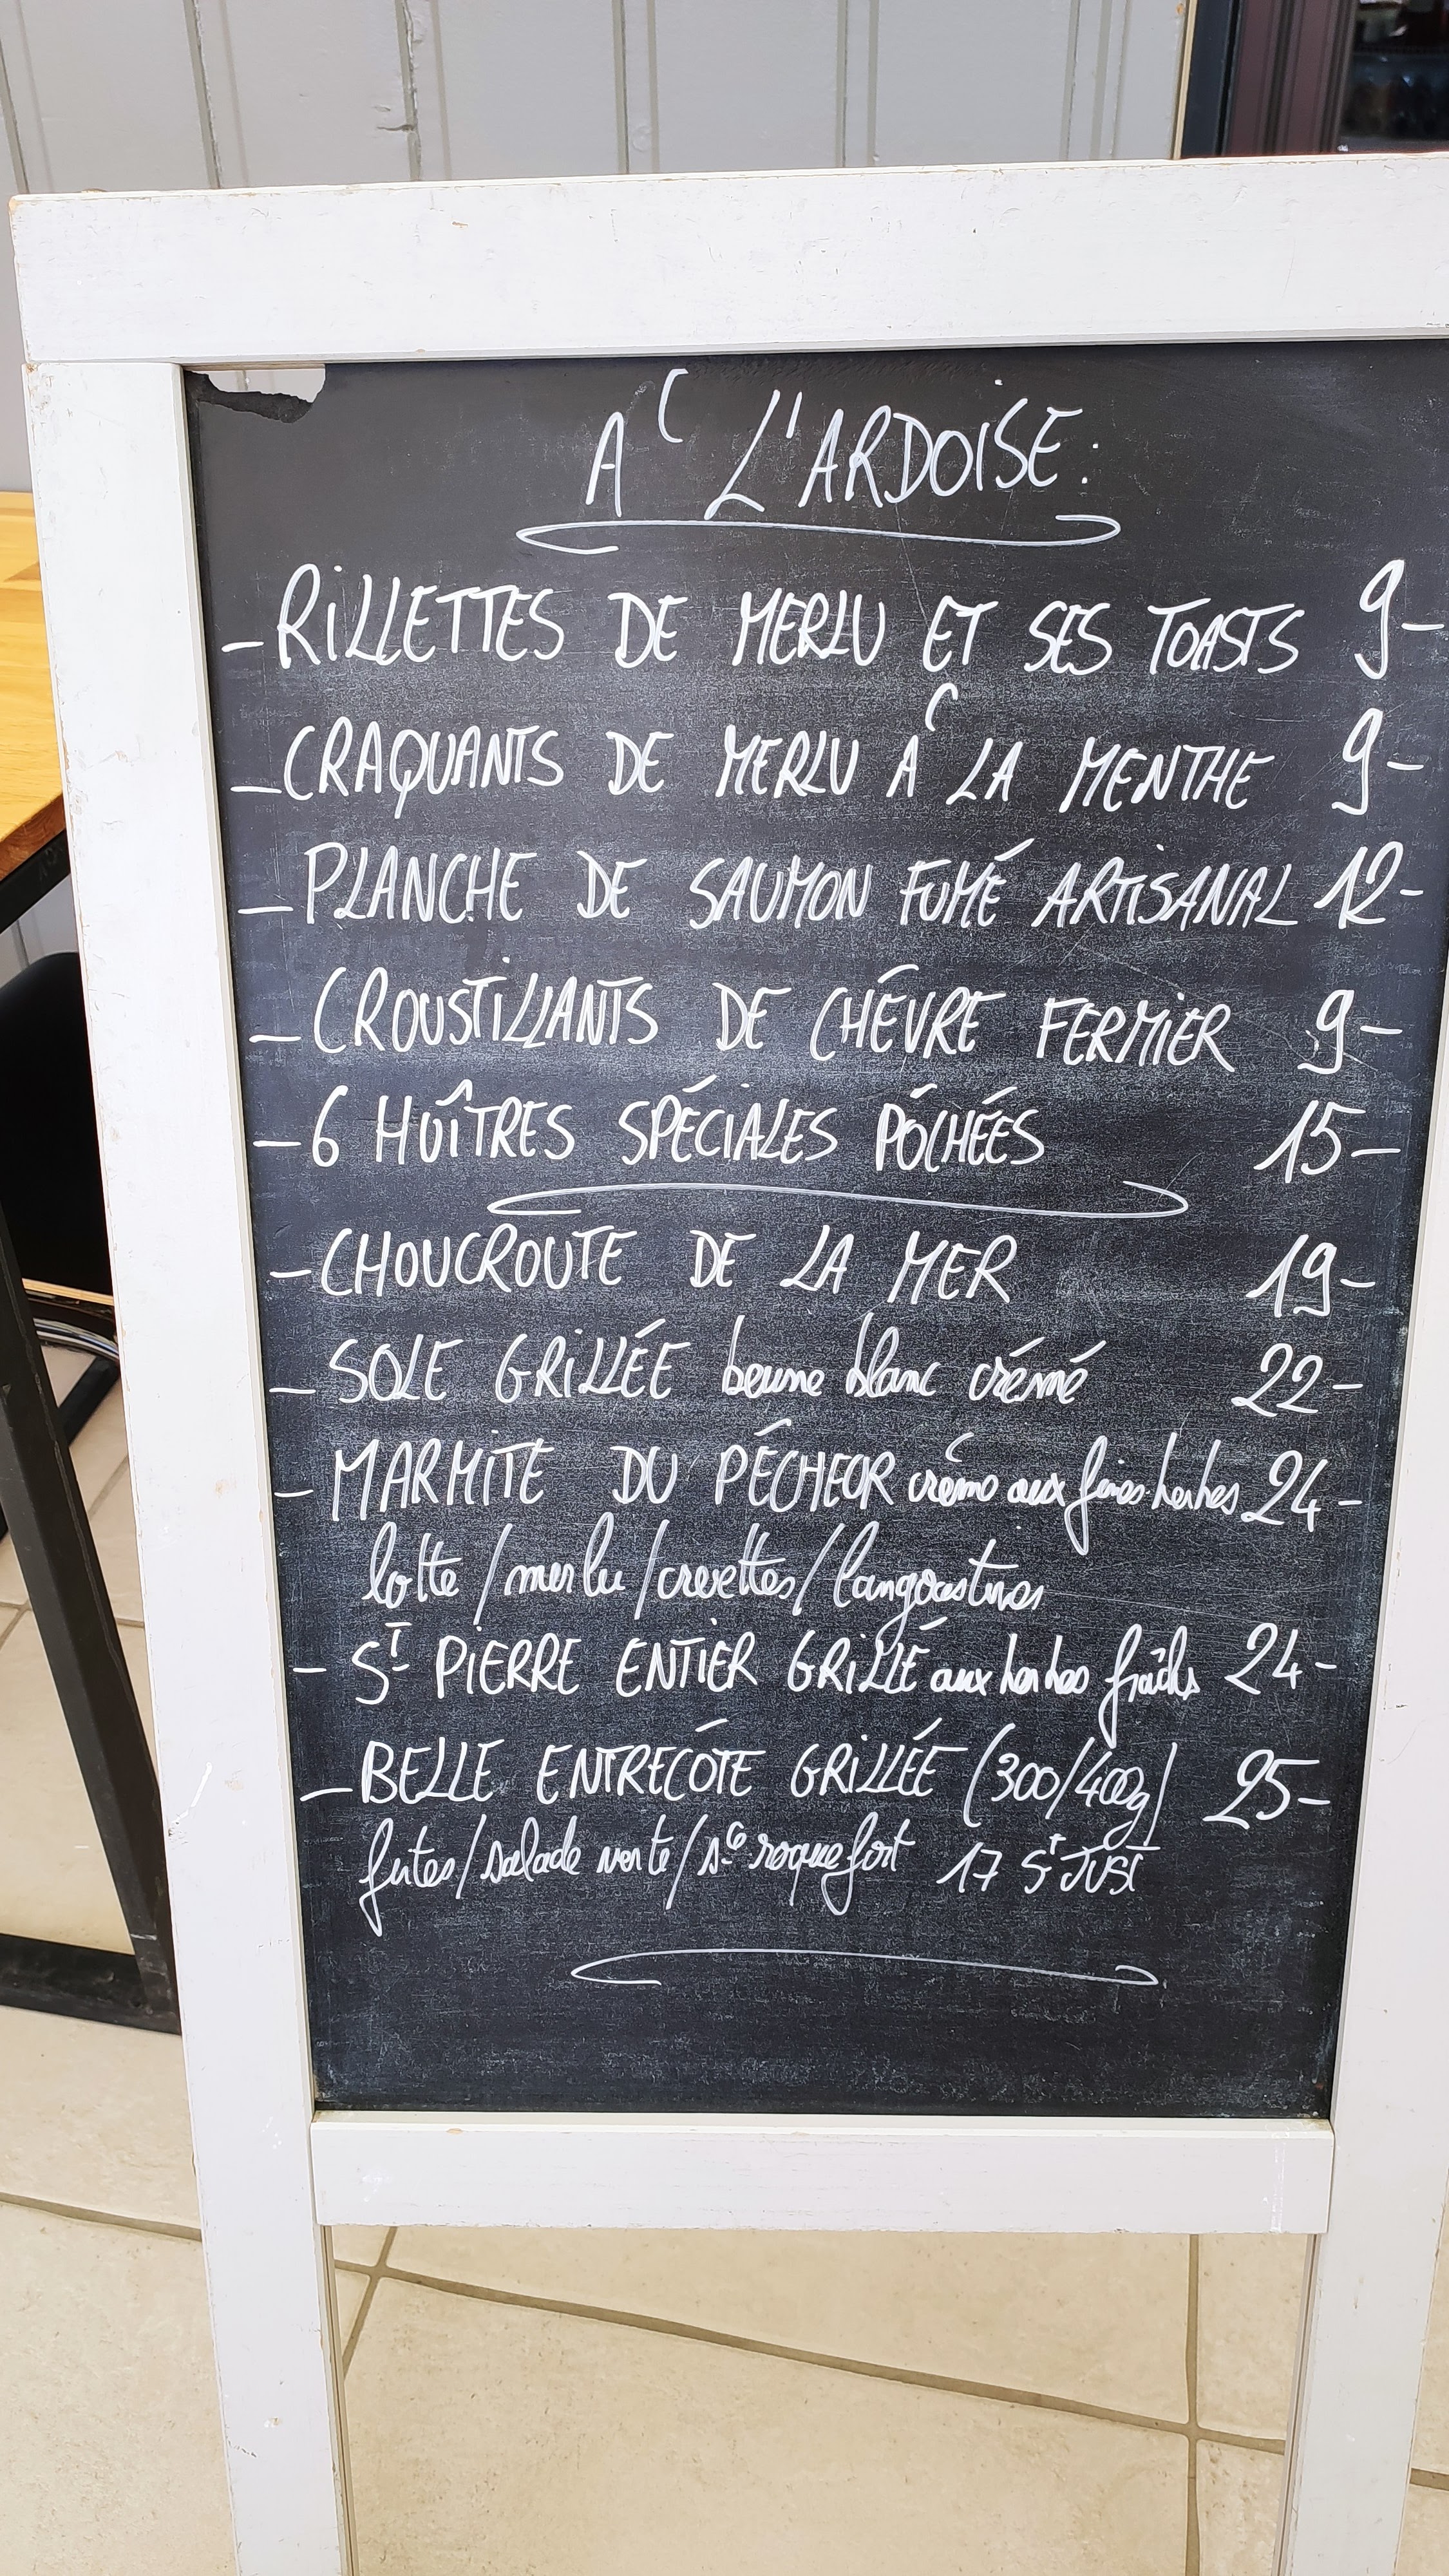 À L'ARDOISE:
- RILLETTES DE MERLU ET SES TOASTS 9-
- CRAQUANTS DE MERLU À LA MENTHE 9-
- PLANCHE DE SAUMON FUMÉ ARTISANAL 12-
- CROUSTILLANTS DE CHÉVRE FERMIER 9-
- 6 HUÎTRES SPÉCIALES PÔCHÉES 15-
- CHOUCROUTE DE LA MER 19-
- SOLE GRILLÉE beurre blanc crémé 22-
- MARMITE DU PÉCHEUR crème aux fines herbes 24-
lotte / merlu / crevettes / langoustines
- ST PIERRE ENTIER GRILLÉ aux herbes fraîches 24-
- BELLE ENTRECÔTE GRILLÉE (300/400g) 25-
frites / salade verte / sce roquefort 17 ST JUST